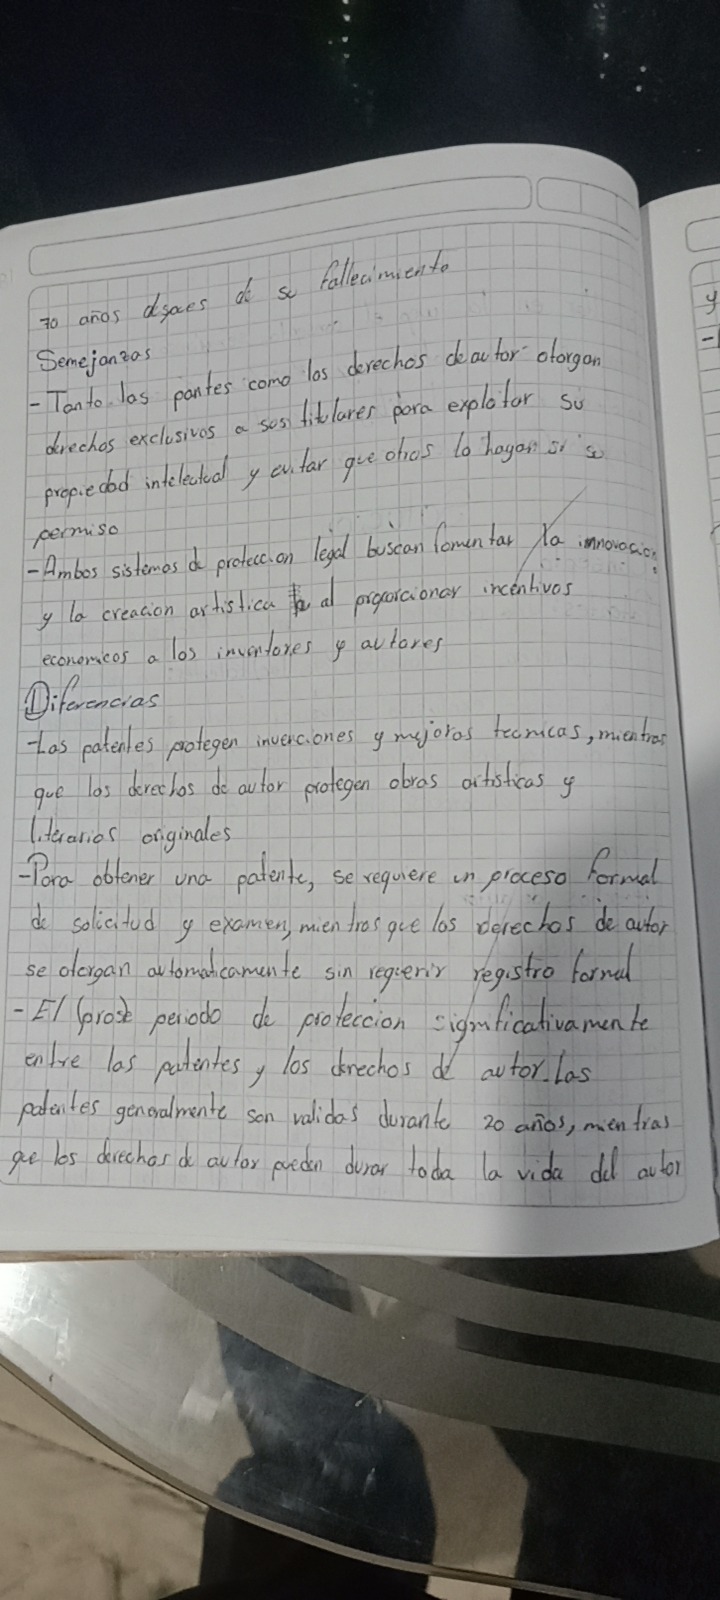 70 años dspues de su fallecimiento
Semejanzas
- Tanto las pantes como los derechos de autor otorgan
derechos exclusivos a sus titulares para explotar su
propiedad intelectual y evitar que otros lo hagan si su
permiso
- Ambos sistemas de proteccion legal buscan fomentar la innovacion
y la creacion artistica al proporcionar incentivos
economicos a los inventores y autores
Diferencias
- Las patentes protegen invenciones y mejoras tecnicas, mientras
que los derechos de autor protegen obras artisticas y
literarios originales
- Para obtener una patente, se requiere un proceso formal
de solicitud y examen, mientras que los derechos de autor
se otorgan automaticamente sin requerir registro formal
- El periodo de proteccion significativamente
entre las patentes y los derechos de autor. Las
patentes generalmente son validas durante 20 años, mientras
que los derechos de autor pueden durar toda la vida del autor
y
-